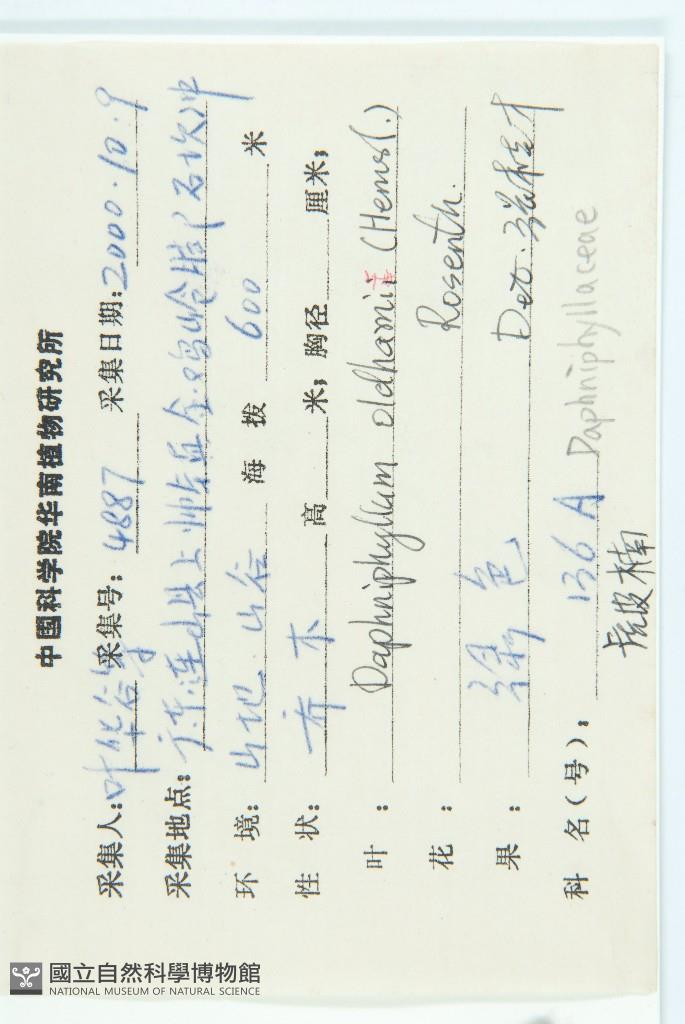 中國科学院华南植物研究所
采集人：叶华谷等 采集号：4887 采集日期：2000.10.9
采集地点：广东连山县上帅 金鸡岭
环境：山地 山谷 海拨 600 米
性状：乔木 高 米；胸径 厘米；
叶：Daphniphyllum oldhamii (Hemsl.)
花：Rosenth.
果：绿色 Det.
科名（号）：136A Daphniphyllaceae
虎皮楠
國立自然科學博物館
NATIONAL MUSEUM OF NATURAL SCIENCE